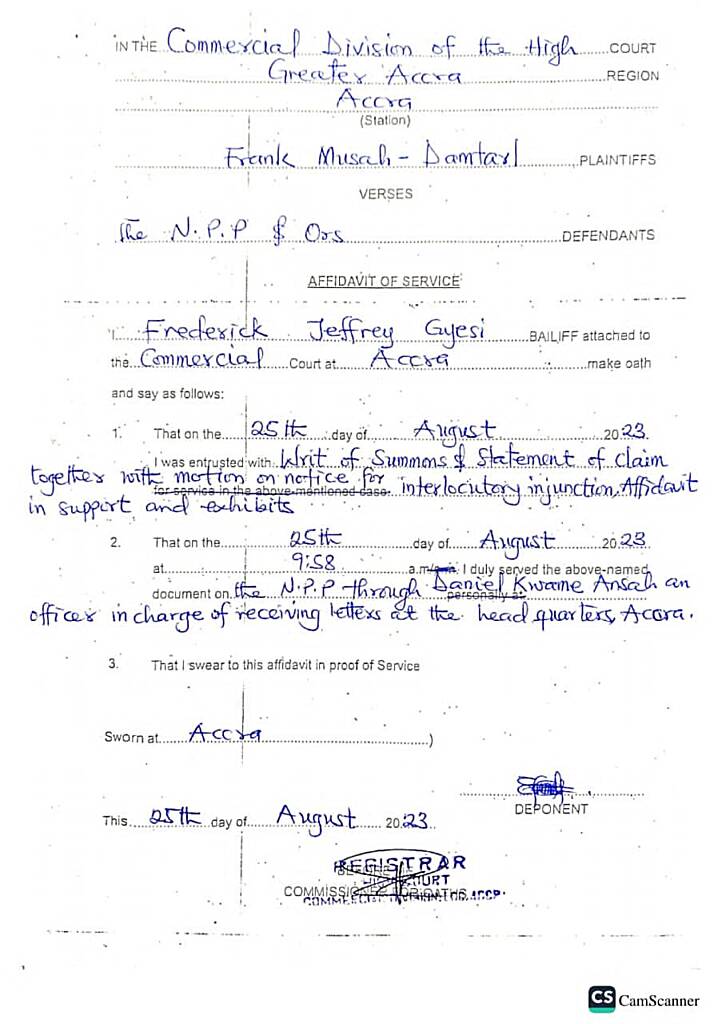 IN THE Commercial Division of the High COURT
Greater Accra REGION
Accra
(Station)
Frank Musah - Damtarl PLAINTIFFS
VERSES
The N.P.P & Ors DEFENDANTS
AFFIDAVIT OF SERVICE
I Frederick Jeffrey Gyesi BAILIFF attached to
the Commercial Court at Accra make oath
and say as follows:
1. That on the 25th day of August 2023.
I was entrusted with Writ of Summons & Statement of claim
together with motion on notice for interlocutory injunction, Affidavit
for service in the above-mentioned case.
in support and exhibits
2. That on the 25th day of August 2023
at 9:58 a.m/p.m I duly served the above-named
document on the N.P.P through Daniel Kwame Ansah an
personally at
officer in charge of receiving letters at the head quarters, Accra.
3. That I swear to this affidavit in proof of Service
Sworn at Accra )
DEPONENT
This 25th day of August 2023.
REGISTRAR
COMMISSIONER FOR OATHS
CS CamScanner